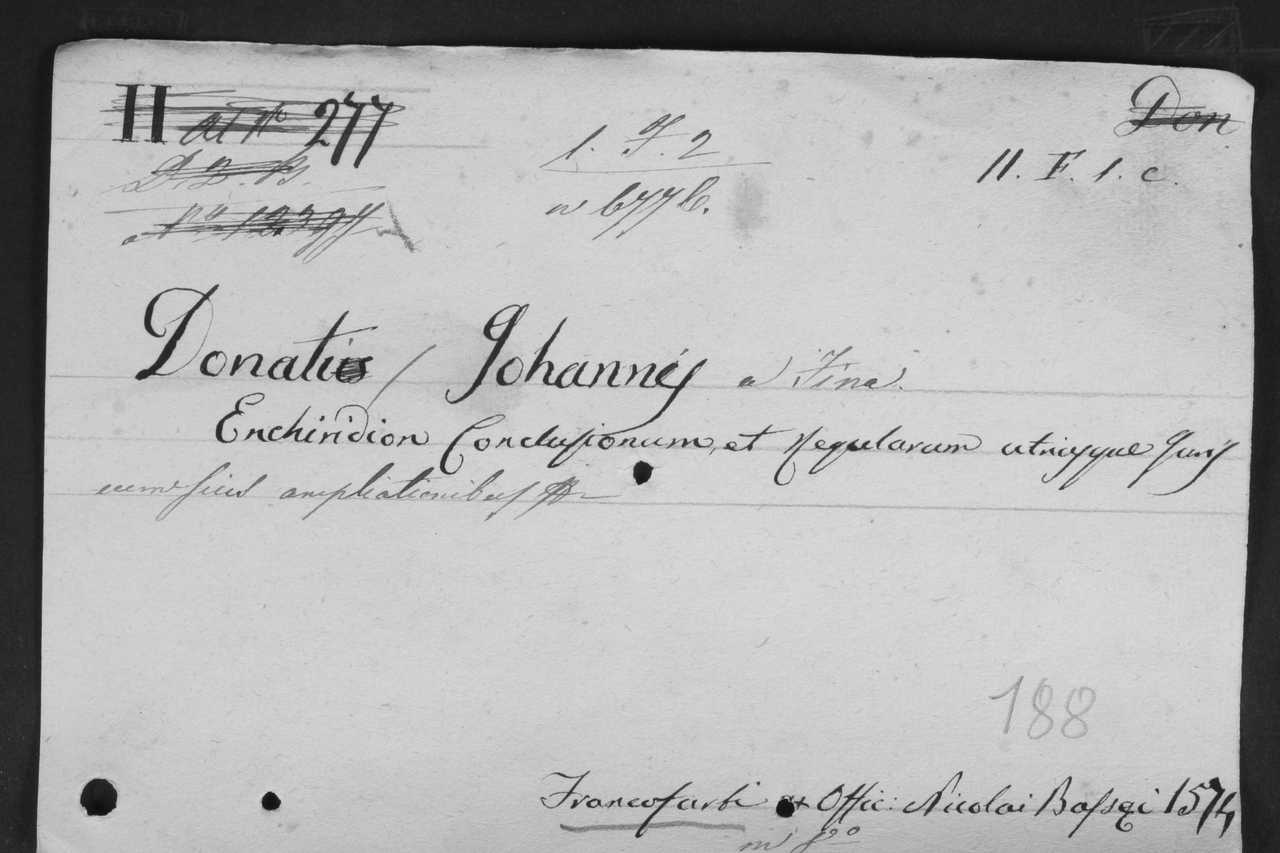 II at No 277
Don
1. F. 2
II. F. 1. c.
D. B. B.
No 12397
n 677 b.
Donati / Johannes a Fina.
Enchiridion Conclusionum, et Regularum utriusque Juris
cum suis ampliationibus
188
Francofurti ex Offic: Nicolai Bassęi 1574
in 8o